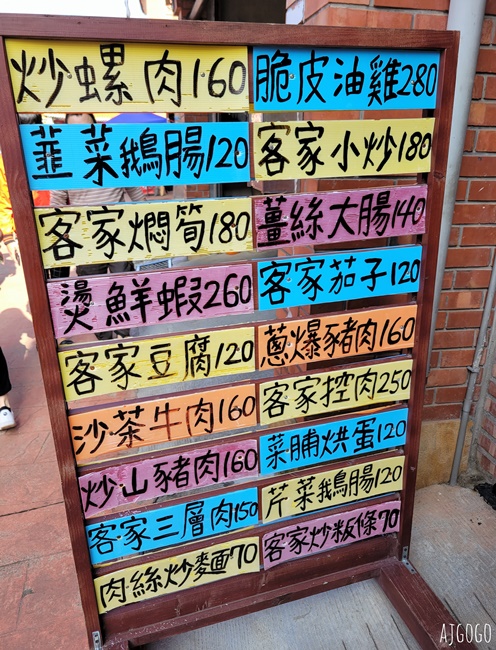 炒螺肉160
脆皮油雞280
韮菜鵝腸120
客家小炒180
客家燜筍180
薑絲大腸140
燙鮮蝦260
客家茄子120
客家豆腐120
蔥爆豬肉160
沙茶牛肉160
客家控肉250
炒山豬肉160
菜脯烘蛋120
客家三層肉150
芹菜鵝腸120
肉絲炒麵70
客家炒粄條70
AJGOGO